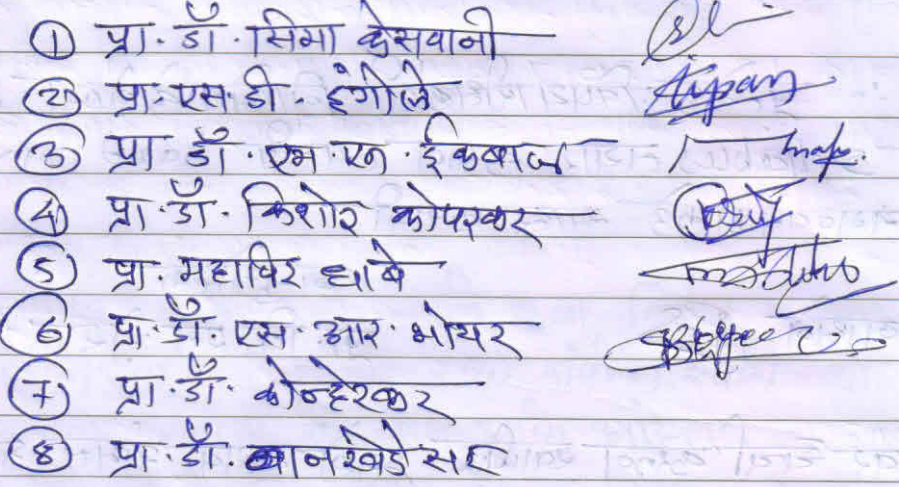 ① प्रा. डॉ. सिमा केसवानी
② प्रा. एस. डी. इंगोले
③ प्रा डॉ. एम. एन. ईकबाल
④ प्रा. डॉ. किशोर कोपरकर
⑤ प्रा. महाविर धाबे
⑥ प्रा. डॉ. एस. आर. भोयर
⑦ प्रा. डॉ. कोन्हेरकर
⑧ प्रा. डॉ. वानखेडे सर